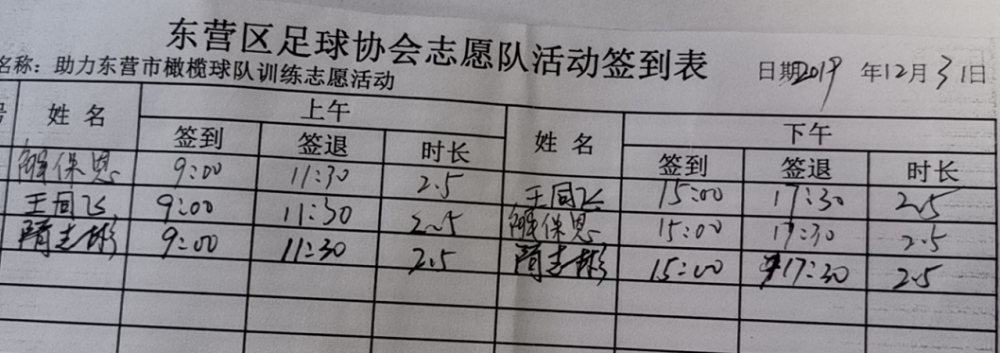 东营区足球协会志愿队活动签到表
名称：助力东营市橄榄球队训练志愿活动
日期2019年12月31日
姓名 上午 姓名 下午
签到 签退 时长 签到 签退 时长
解保恩 9:00 11:30 2.5 王同飞 15:00 17:30 2.5
王同飞 9:00 11:30 2.5 解保恩 15:00 17:30 2.5
隋志彬 9:00 11:30 2.5 隋志彬 15:00 17:30 2.5